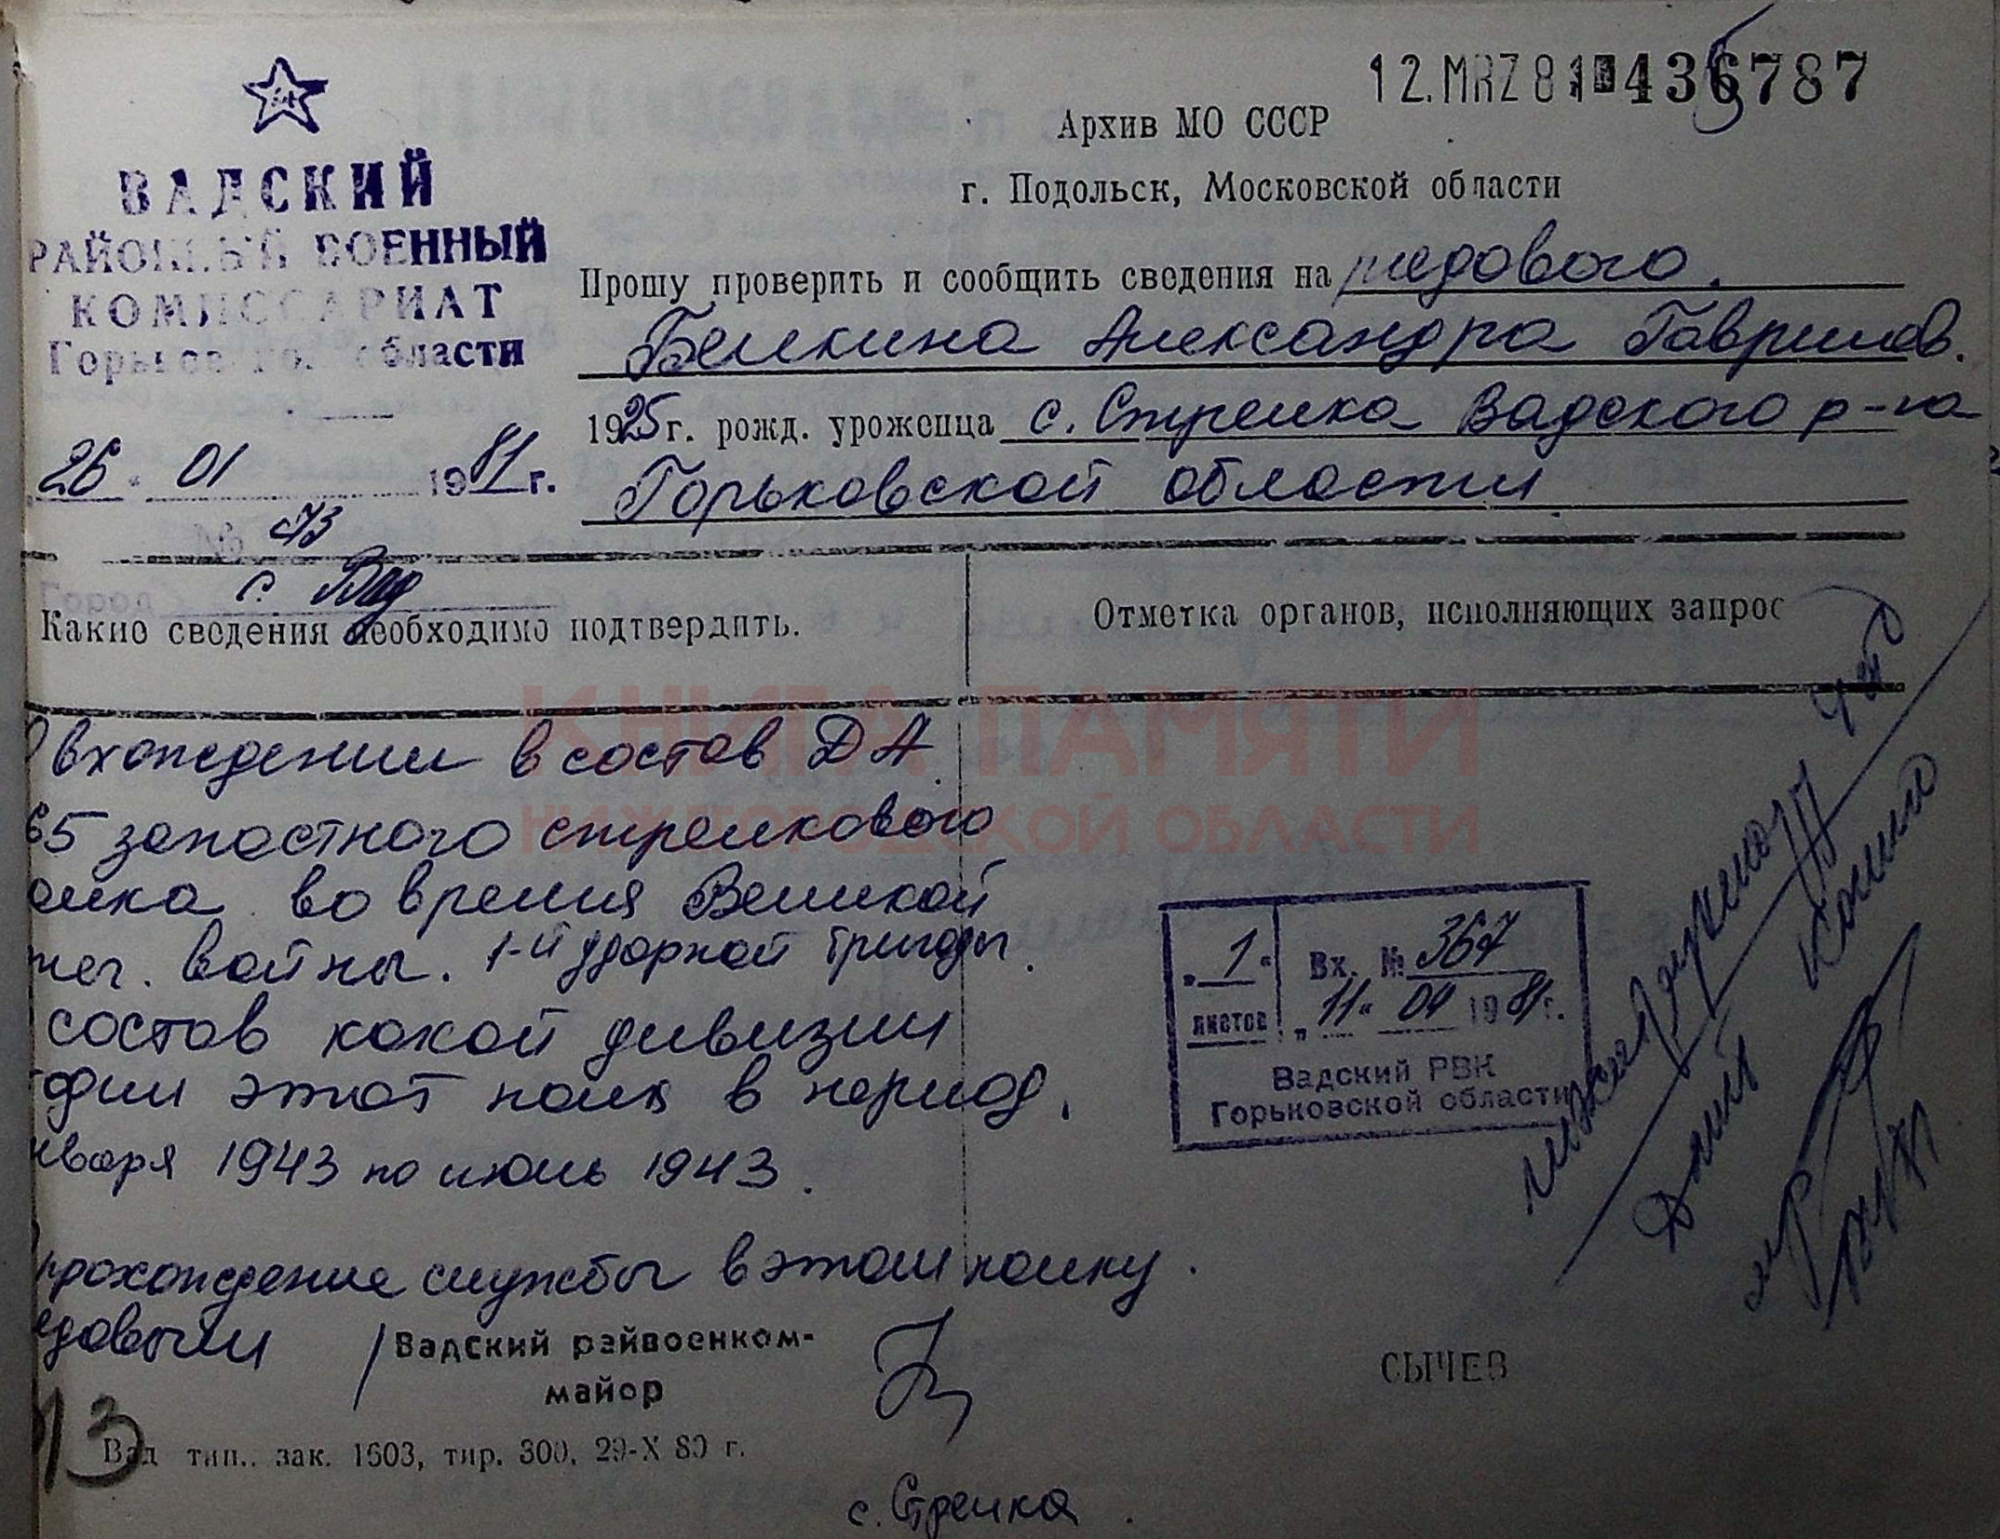 12.MRZ 81 436787
Архив МО СССР
г. Подольск, Московской области
ВАДСКИЙ
РАЙОННЫЙ ВОЕННЫЙ
КОМИССАРИАТ
Горьковской области
26 01 1981 г.
№ 73
с. Вад
Город
Прошу проверить и сообщить сведения на рядового
Белкина Александра Гаврилов.
1925 г. рожд. уроженца с. Стрелка Вадского р-на
Горьковской области
Какие сведения необходимо подтвердить.
Отметка органов, исполняющих запрос
КНИГА ПАМЯТИ
НИЖЕГОРОДСКОЙ ОБЛАСТИ
О вхождении в состав ДА
65 запастного стрелкового
олка во время Великой
теч. войны. 1-й ударной бригады.
состав какой дивизии
одил этот полк в период
нваря 1943 по июль 1943.
прохождение службы в этом полку.
ядовым
"1" листов
Вх. № 367
"11" 04 1981 г.
Вадский РВК
Горьковской области
Вадский райвоенком-
майор
СЫЧЕВ
13
Вад тип., зак. 1603, тир. 300, 29-X 80 г.
с. Стрелка